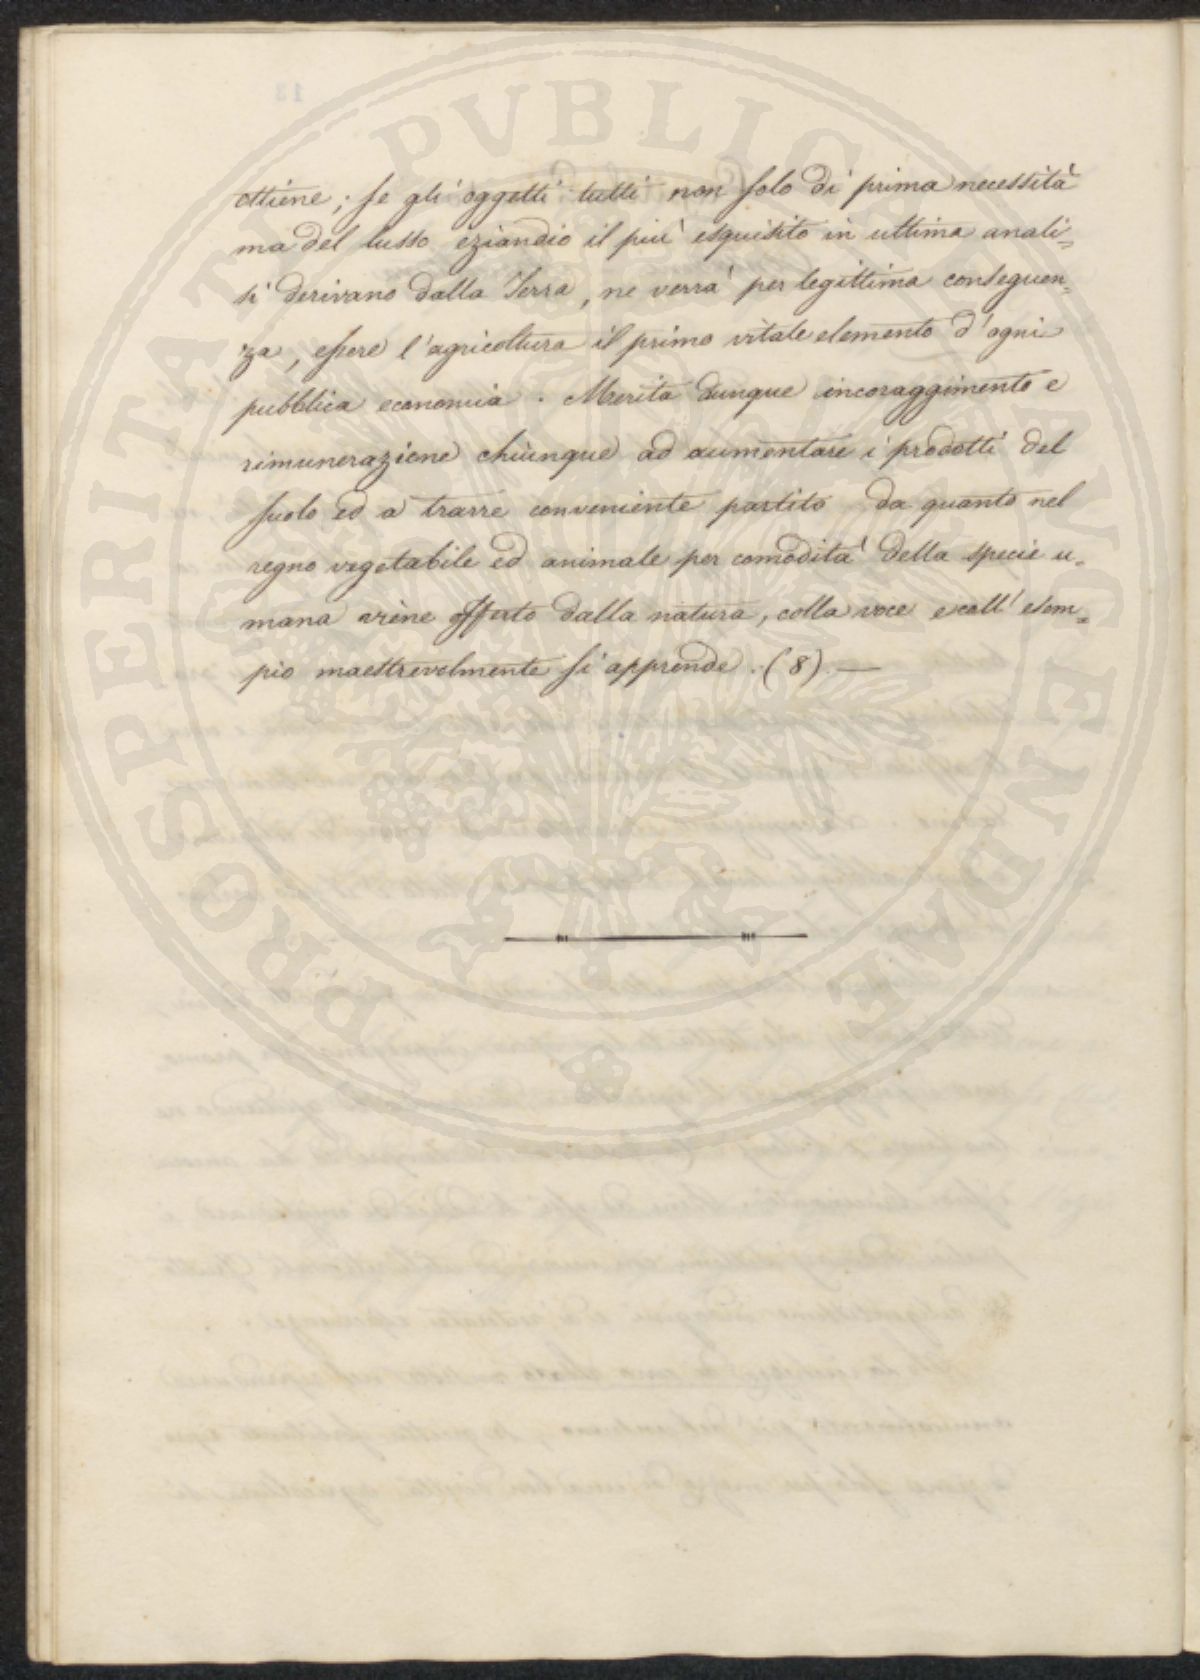 ottiene; se gli oggetti tutti non solo di prima necessità
ma del lusso eziandio il più esquisito in ultima anali=
si derivano dalla Terra, ne verrà per legittima conseguen=
za, essere l'agricoltura il primo vitale elemento d'ogni
pubblica economia. Merita dunque incoraggimento e
rimunerazione chiunque ad aumentare i prodotti del
suolo ed a trarre conveniente partito da quanto nel
regno vegetabile ed animale per comodità della specie u=
mana viene offerto dalla natura, colla voce e coll'esem=
pio maestrevolmente si apprende. (8). —
PROSPERITATI PUBLICAE AUGENDAE